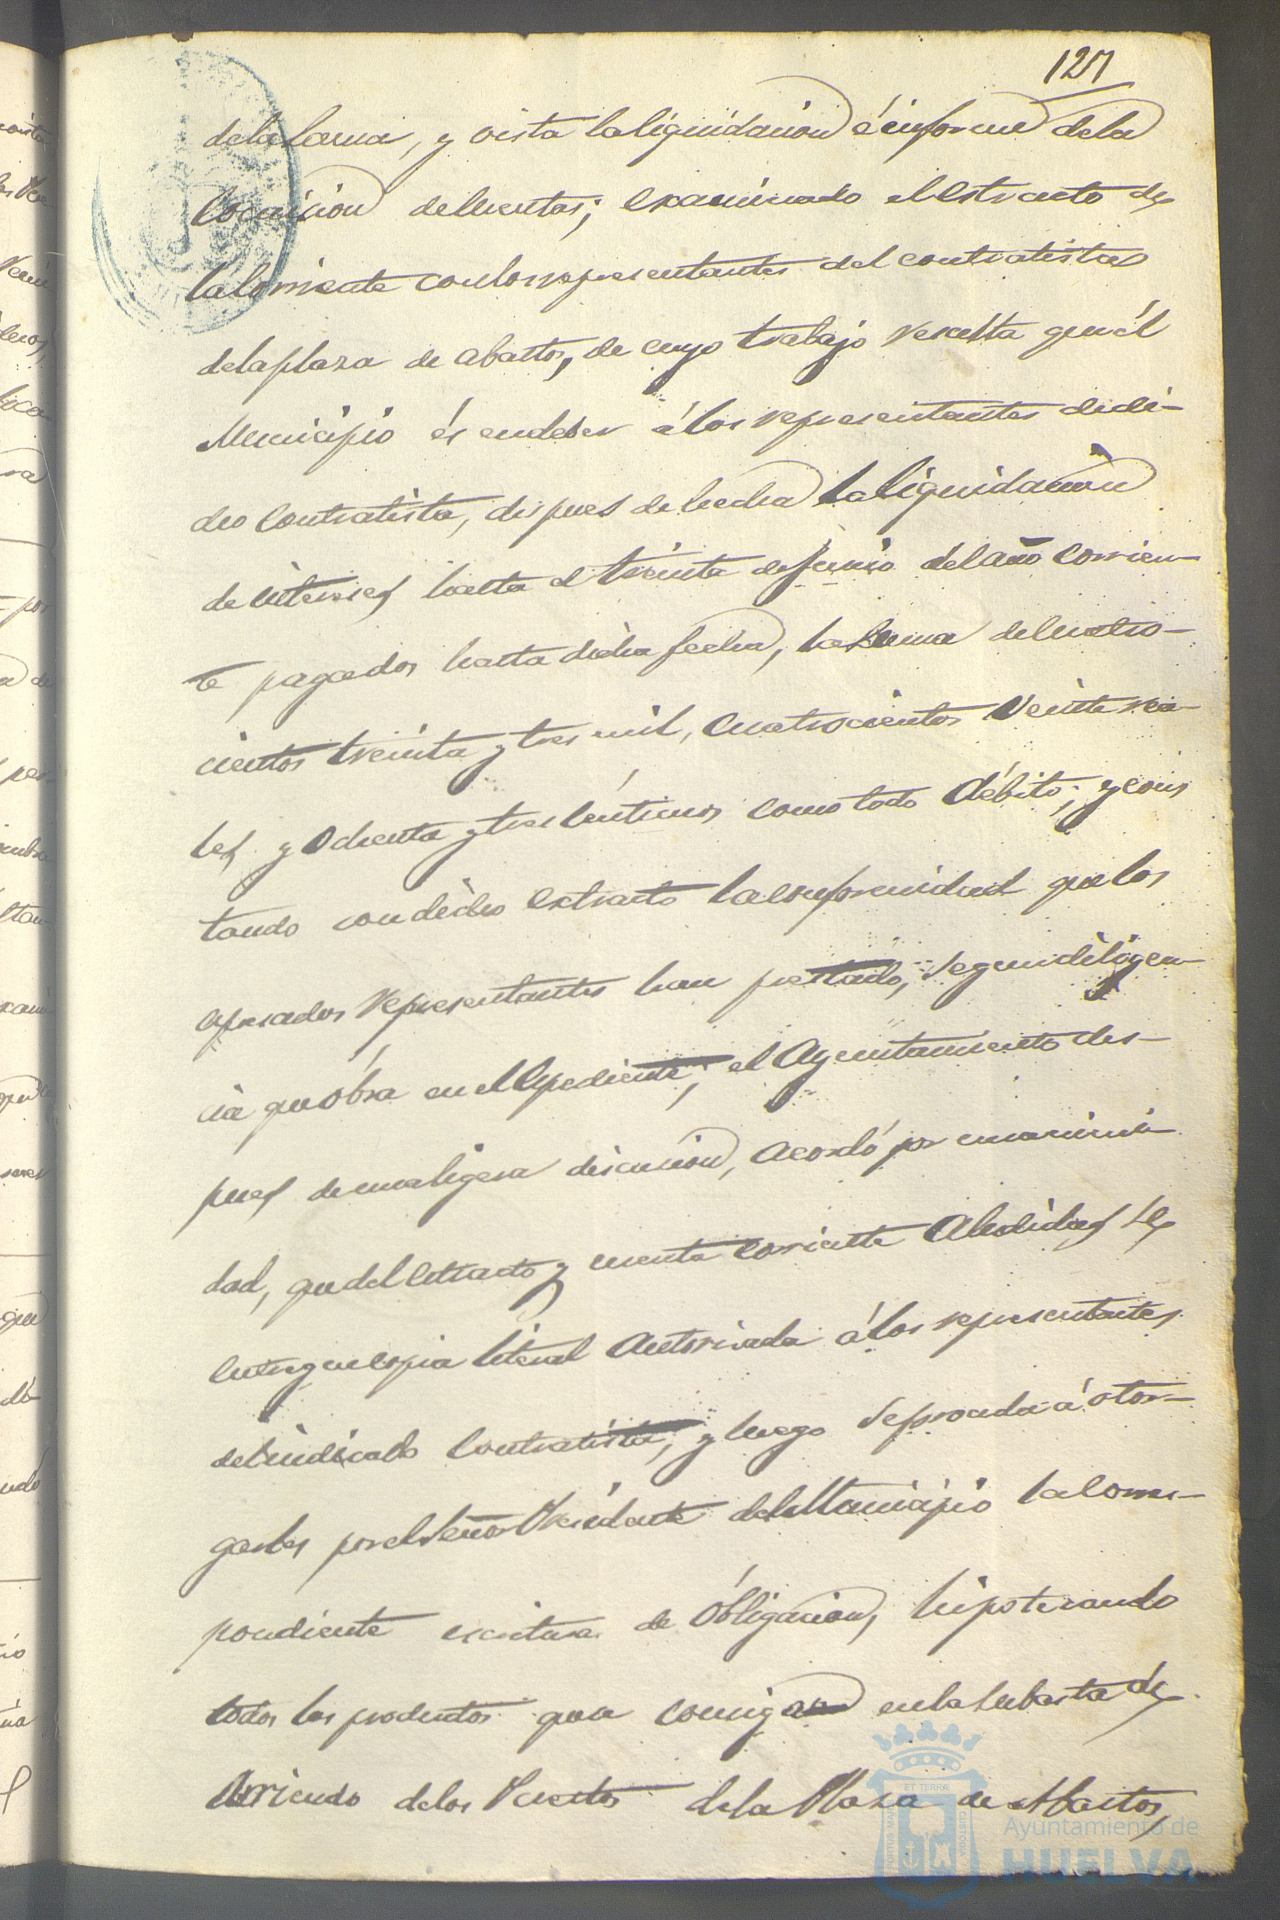 127
de la Lama, y vista la liquidacion é informe de la
Comision de Cuentas; examinado el Estracto de
la Corriente con los representantes del contratista
de la plaza de abastos, de cuyo trabajo resulta que él
Municipio és en deber á los representantes de di-
cho Contratista, despues de hecha la liquidacion
de intereses hasta el treinta de Junio del año corrien-
te pagados hasta dicha fecha, la suma de Cuatro-
cientos treinta y tres mil, Cuatrocientos veinte rea-
les y Ochenta y tres Céntimos como todo débito; y cons
tando con dicho extracto la conformidad que los
espresados representantes han prestado, segun diligen-
cia que óbra en el Espediente; el Ayuntamiento des-
pues de una ligera discusion, acordó por unanimi-
dad, que del Estracto y cuenta corriente Aludidas se
entregue copia literal autorizada á los representantes
del indicado Contratista, y luego se proceda á otor-
garles por el Señor Presidente del Municipio la Corres-
pondiente escritura de Obligacion, hipotecando
todos los productos que se consigan en la Subasta de
Arriendo de los Puestos de la Plaza de Abastos,
ET TERRÆ
Ayuntamiento de
HUELVA